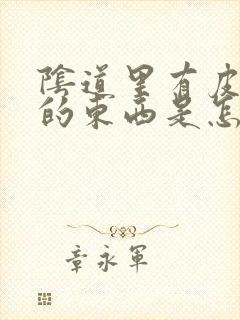 陰道里有皮
的東西是怎
章永軍